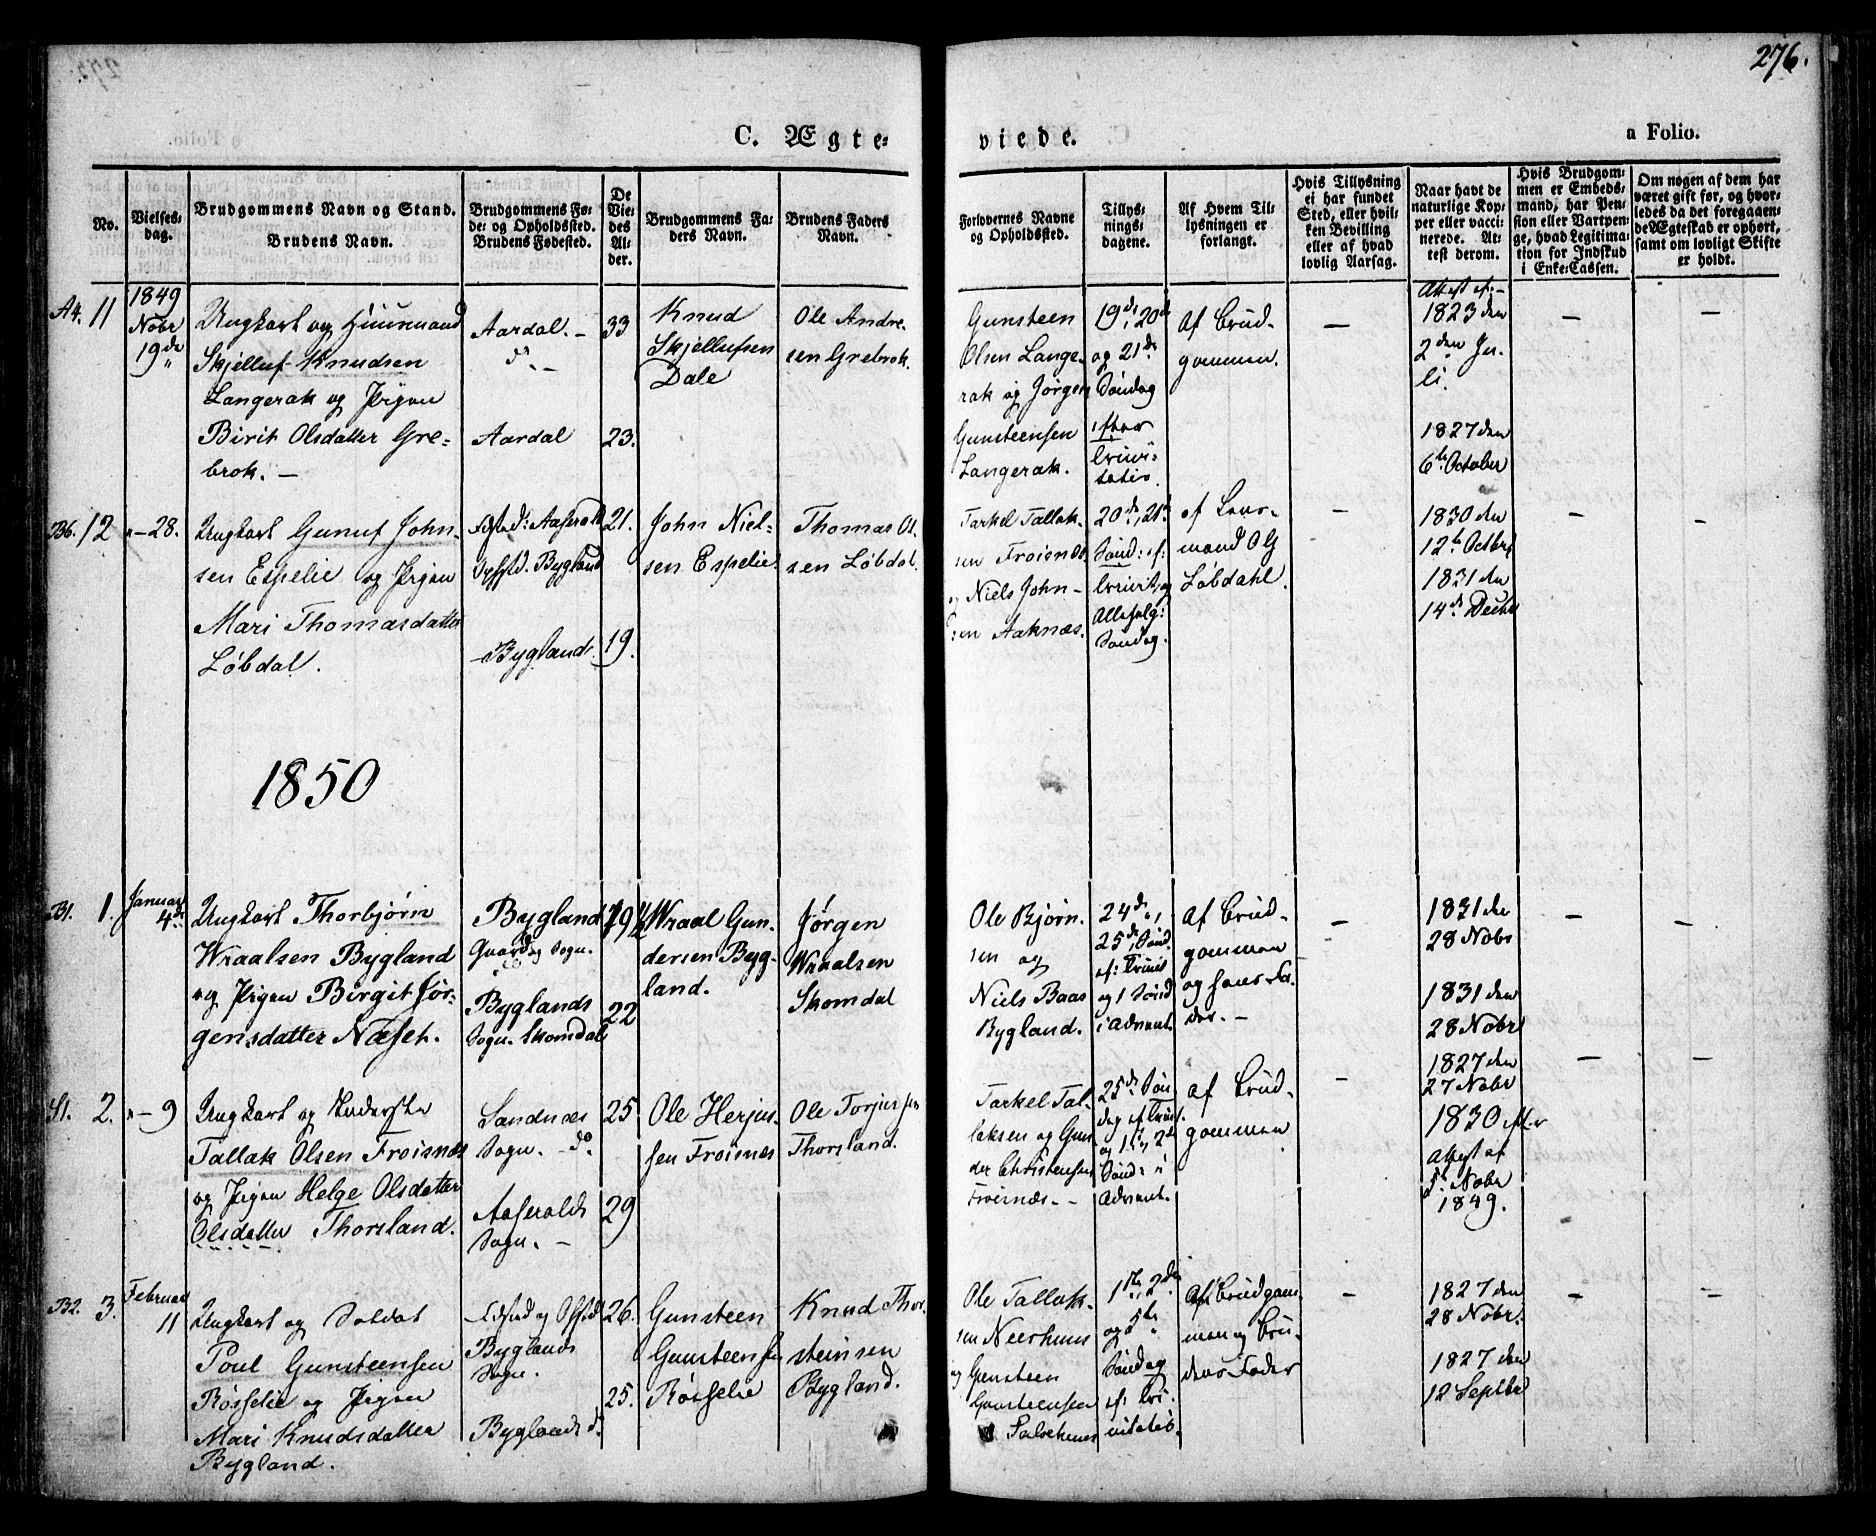 276.
C. Ægte-
viede.
a Folio.
No.
Vielses-
dag.
Brudgommens Navn og Stand.
Brudens Navn.
Brudgommens Fø-
de- og Opholdssted.
Brudens Fødested.
De
Vie-
des
Al-
der.
Brudgommens Fa-
ders Navn.
Brudens Faders
Navn.
Forlovernes Navne
og Opholdssted.
Tillys-
nings-
dagene.
Af Hvem Til-
lysningen er
forlangt.
Hvis Tillysning
ei har fundet
Sted, eller hvil-
ken Bevilling
eller af hvad
lovlig Aarsag.
Naar havt de
naturlige Kop-
per eller vacci-
nerede. At-
test derom.
Hvis Brudgom-
men er Embeds-
mand, har Pen-
sion eller Vartpen-
ge, hvad Legitima-
tion for Indskud
i Enke-Cassen.
Om nogen af dem har
været gift før, og hvor-
ledes da det foregaaen-
de Ægteskab er ophørt,
samt om lovligt Skifte
er holdt.
A4. 11
1849
Nobr
19de
Ungkarl og Huusmand
Skjelluf Knudsen
Langerak og Pigen
Birit Olsdatter Gre-
brok. -
Aardal. -
do. -
Aardal
33
23.
Knud
Skjellufsen
Dale
Ole Andre-
sen Grebrok.
Gunsteen
Olsen Lange-
rak og Jørgen
Gunsteensen
Langerak.
19de, 20de
og 21de
Søndag
efter
trini-
tatis.
af Brud-
gommen.
-
Attest af -
1823 den
2den Ju-
li.
1827 den
6te October
-
-
B6. 12
"-28.
Ungkarl Gunuf John-
sen Espelie og Pigen
Mari Thomasdatter
Løbdal.
Fødstd: Aaserald
Opholdstd. Bygland
Bygland.
21.
19.
John Niel-
sen Espelie.
Thomas Ol-
sen Løbdal.
Tarkel Tallak-
sen Froisnæs
og Niels John-
sen Aaknæs.
20de, 21de
Sønd: ef:
trinit. og
Allehelg:
Søndag.
af Lens-
mand Ol
Løbdahl.
-
1830 den
12te Octbr
1831 den
14de Decbr
-
-
1850
B1. 1.
Januar
4de
Ungkarl Thorbjørn
Wraalsen Bygland
og Pigen Birgit Jør-
gensdatter Næset.
Bygland
Sogn.
Byglands
Sogn. Skomdal
19½
22
Wraal Gun-
dersen Byg-
land.
Jørgen
Wraalsen
Skomdal
Ole Bjørn-
sen og
Niels Baas
Bygland.
24de,
25de, Sønd.
ef: Trinit
og 1 Sønd
i Advent.
af Brud-
gommen
og hans Fa-
der. -
-
1831 den
28 Nobr
1831 den
28 Nobr
-
-
S1. 2.
"-9
Ungkarl og
Tallak Olsen Froisnæs
og Pigen Helge Olsdatter
Olsdatter Thorsland.
Sandnæs
Sogn. - do.
Aaseralds
Sogn. -
25
29
Ole Herjus-
sen Froisnæs
Ole Torjussen
Thorsland.
Tarkel Tal-
laksen og Gun-
der Christensen
Froisnæs. -
25de Søn
dag ef. Trinit.
og 1ste, 2de
Sønd: i
Advent.
af Brud-
gommen
-
1827 den
27 Nobr
1830
Attest af
5te Nobr
1849.
-
-
B2. 3.
Februar
11
Ungkarl og Soldat
Poul Gunsteensen
Røsselie og Pigen
Mari Knudsdatter
Bygland.
Fødstd og Ophstd
Byglands
Sogn.
Byglands do.
26.
25.
Gunsteen
Gunsteensen
Røsselie
Knud Thor-
steinsen
Bygland.
Ole Tallak-
sen Neerhuus
og Gunsteen
Gunsteensen
1ste, 2den
og 5te
Søndag
ef: tri-
nitatis.
af Brudgom-
men og Bru-
dens Fader
-
1827 den
28 Nobr.
1827 den
12 Septbr
-
-